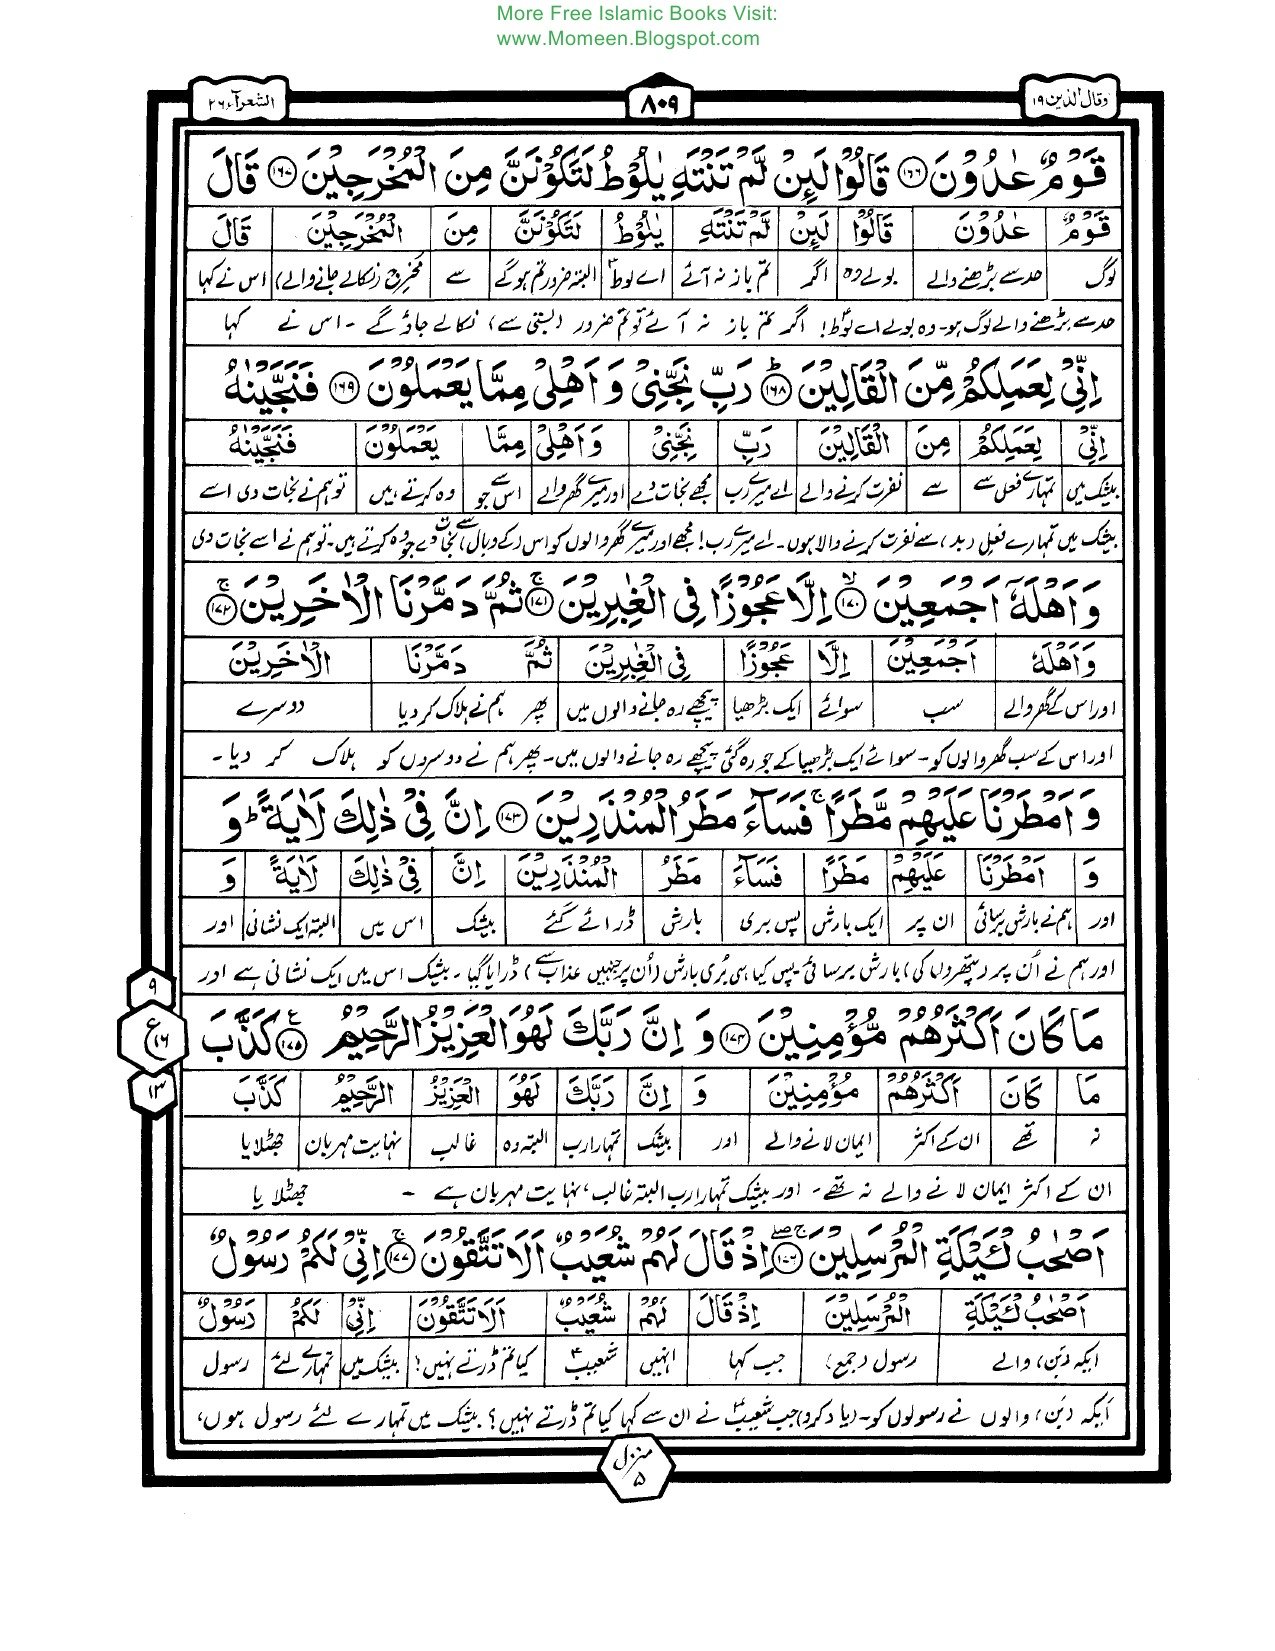 More Free Islamic Books Visit:
www.Momeen.Blogspot.com
وقال الذین ۱۹
۸۰۹
الشعرآء ۲۶
قَوْمٌ عٰدُوْنَ ﴿۱۶۶﴾ قَالُوْا لَىِٕنْ لَّمْ تَنْتَهِ یٰلُوْطُ لَتَكُوْنَنَّ مِنَ الْمُخْرَجِیْنَ ﴿۱۶۷﴾ قَالَ
قَوْمٌ عٰدُوْنَ قَالُوْا لَىِٕنْ لَّمْ تَنْتَهِ یٰلُوْطُ لَتَكُوْنَنَّ مِنَ الْمُخْرَجِیْنَ قَالَ
لوگ حد سے بڑھنے والے بولے وہ اگر تم باز نہ آئے اے لوطؑ البتہ ضرور تم ہوگے سے مخرج (نکالے جانے والے) اس نے کہا
حد سے بڑھنے والے لوگ ہو۔ وہ بولے اے لوطؑ! اگر تم باز نہ آئے تو تم ضرور (بستی سے) نکالے جاؤگے ۔ اس نے کہا
اِنِّیْ لِعَمَلِكُمْ مِّنَ الْقَالِیْنَ ﴿۱۶۸﴾ؕ رَبِّ نَجِّنِیْ وَ اَهْلِیْ مِمَّا یَعْمَلُوْنَ ﴿۱۶۹﴾ فَنَجَّیْنٰهُ
اِنِّیْ لِعَمَلِكُمْ مِنَ الْقَالِیْنَ رَبِّ نَجِّنِیْ وَاَهْلِیْ مِمَّا یَعْمَلُوْنَ فَنَجَّیْنٰهُ
بیشک میں تمہارے فعل سے سے نفرت کرنے والے اے میرے رب مجھے نجات دے اور میرے گھر والے اس سے جو وہ کرتے ہیں تو ہم نے نجات دی اسے
بیشک میں تمہارے فعل (بد) سے نفرت کرنے والا ہوں۔ اے میرے رب! مجھے اور میرے گھر والوں کو اس (کے وبال) سے نجات دے جو وہ کرتے ہیں۔ تو ہم نے اسے نجات دی
وَ اَهْلَهٗۤ اَجْمَعِیْنَ ﴿۱۷۰﴾ۙ اِلَّا عَجُوْزًا فِی الْغٰبِرِیْنَ ﴿۱۷۱﴾ۚ ثُمَّ دَمَّرْنَا الْاٰخَرِیْنَ ﴿۱۷۲﴾ۚ
وَاَهْلَهٗ اَجْمَعِیْنَ اِلَّا عَجُوْزًا فِی الْغٰبِرِیْنَ ثُمَّ دَمَّرْنَا الْاٰخَرِیْنَ
اور اس کے گھر والے سب سوائے ایک بڑھیا پیچھے رہ جانے والوں میں پھر ہم نے ہلاک کر دیا دوسرے
اور اس کے سب گھر والوں کو۔ سوائے ایک بڑھیا کے جو رہ گئی پیچھے رہ جانے والوں میں۔ پھر ہم نے دوسروں کو ہلاک کر دیا ۔
وَ اَمْطَرْنَا عَلَیْهِمْ مَّطَرًا ۚ فَسَآءَ مَطَرُ الْمُنْذَرِیْنَ ﴿۱۷۳﴾ اِنَّ فِیْ ذٰلِكَ لَاٰیَةً ؕ وَ
وَ اَمْطَرْنَا عَلَیْهِمْ مَطَرًا فَسَآءَ مَطَرُ الْمُنْذَرِیْنَ اِنَّ فِیْ ذٰلِكَ لَاٰیَةً وَ
اور ہم نے بارش برسائی ان پر ایک بارش پس بری بارش ڈرائے گئے بیشک اس میں البتہ ایک نشانی اور
اور ہم نے اُن پر (پتھروں کی) بارش برسائی۔ پس کیا ہی بُری بارش (اُن پر جنہیں عذاب سے) ڈرایا گیا ۔ بیشک اس میں ایک نشانی ہے اور
مَا كَانَ اَكْثَرُهُمْ مُّؤْمِنِیْنَ ﴿۱۷۴﴾ وَ اِنَّ رَبَّكَ لَهُوَ الْعَزِیْزُ الرَّحِیْمُ ﴿۱۷۵﴾ۧ كَذَّبَ
مَا كَانَ اَكْثَرُهُمْ مُؤْمِنِیْنَ وَ اِنَّ رَبَّكَ لَهُوَ الْعَزِیْزُ الرَّحِیْمُ كَذَّبَ
نہ تھے ان کے اکثر ایمان لانے والے اور بیشک تمہارا رب البتہ وہ غالب نہایت مہربان جھٹلایا
ان کے اکثر ایمان لانے والے نہ تھے۔ اور بیشک تمہارا رب البتہ غالب، نہایت مہربان ہے ۔ جھٹلایا
۹
ع
۱۶
۱۳
اَصْحٰبُ لْـَٔیْكَةِ الْمُرْسَلِیْنَ ﴿۱۷۶﴾ۚۖ اِذْ قَالَ لَهُمْ شُعَیْبٌ اَلَا تَتَّقُوْنَ ﴿۱۷۷﴾ۚ اِنِّیْ لَكُمْ رَسُوْلٌ
اَصْحٰبُ لْـَٔیْكَةِ الْمُرْسَلِیْنَ اِذْ قَالَ لَهُمْ شُعَیْبٌ اَلَا تَتَّقُوْنَ اِنِّیْ لَكُمْ رَسُوْلٌ
ایکہ (بَن) والے رسول (جمع) جب کہا انہیں شعیبؑ کیا تم ڈرتے نہیں؟ بیشک میں تمہارے لئے رسول
اَیکہ (بَن) والوں نے رسولوں کو۔ (یاد کرو) جب شعیبؑ نے ان سے کہا کیا تم ڈرتے نہیں؟ بیشک میں تمہارے لئے رسول ہوں،
منزل ۵